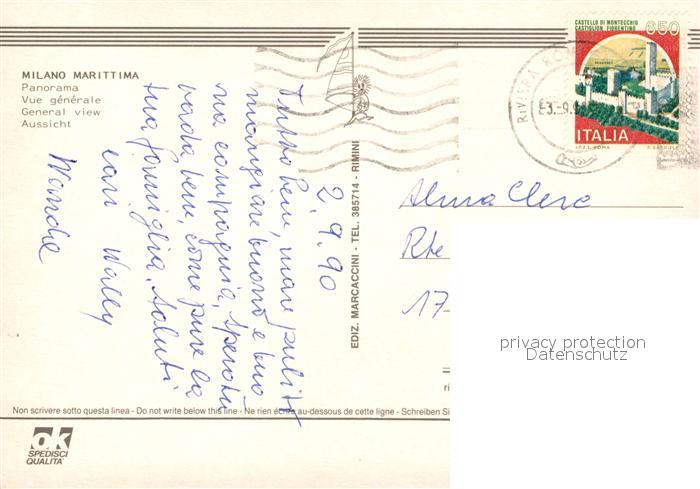 MILANO MARITTIMA
Panorama
Vue générale
General view
Aussicht
2.9.90
Tutto bene, mare pulito
mangiare buono e buo
na compagnia, spero tu
vada bene, come pure la
tua famiglia. Saluti
cari Wally
Wanda
EDIZ. MARCACCINI - TEL. 385714 - RIMINI
CASTELLO DI MONTECCHIO
CASTIGLION FIORENTINO
650
ITALIA
I.P.Z.S. ROMA
RIVIERA
3.-9.
Alma Clerc
Rte
17
privacy protection
Datenschutz
ri
Non scrivere sotto questa linea - Do not write below this line - Ne rien écrire au-dessous de cette ligne - Schreiben Si
ok
SPEDISCI
QUALITA'